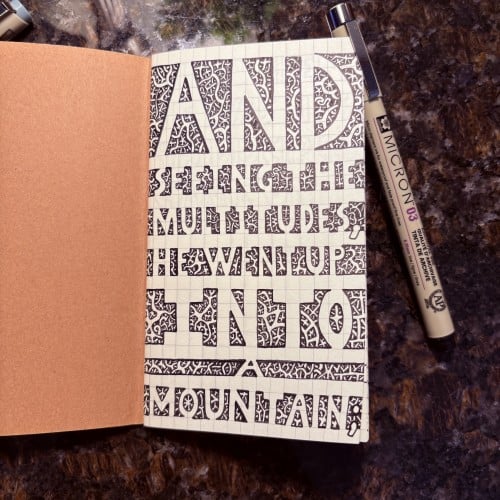 AND
SEEING THE
MULTITUDES,
HE WENT UP
INTO
A
MOUNTAIN;
MICRON 03